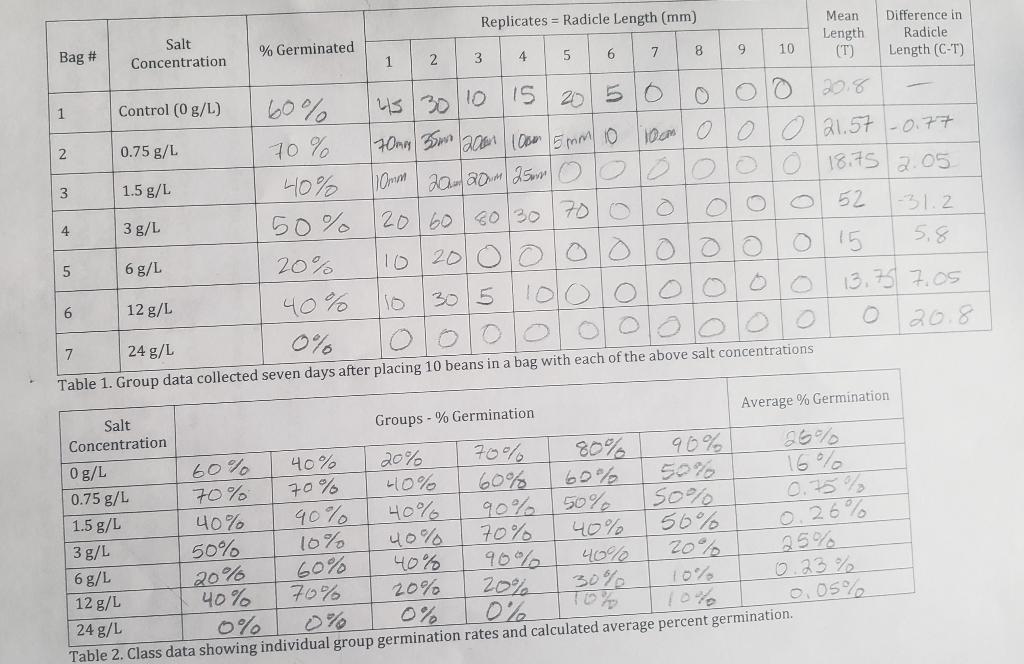 Bag # Salt Concentration % Germinated Replicates = Radicle Length (mm) Mean Length (T) Difference in Radicle Length (C-T)
1 2 3 4 5 6 7 8 9 10
1 Control (0 g/L) 60% 45 30 10 15 20 5 0 0 0 0 20.8 —
2 0.75 g/L 70% 70mm 35mm 20mm 10mm 5mm 10 10mm 0 0 0 21.57 -0.77
3 1.5 g/L 40% 10mm 20mm 20mm 25mm 0 0 0 0 0 0 18.75 2.05
4 3 g/L 50% 20 60 80 30 70 0 0 0 0 0 52 -31.2
5 6 g/L 20% 10 20 0 0 0 0 0 0 0 0 15 5.8
6 12 g/L 40% 10 30 5 10 0 0 0 0 0 0 13.75 7.05
7 24 g/L 0% 0 0 0 0 0 0 0 0 0 0 0 20.8
Table 1. Group data collected seven days after placing 10 beans in a bag with each of the above salt concentrations
Salt Concentration Groups - % Germination Average % Germination
0 g/L 60% 40% 20% 70% 80% 90% 26%
0.75 g/L 70% 70% 40% 60% 60% 50% 16%
1.5 g/L 40% 90% 40% 90% 50% 50% 0.75%
3 g/L 50% 10% 40% 70% 40% 50% 0.26%
6 g/L 20% 60% 40% 90% 40% 20% 25%
12 g/L 40% 70% 20% 20% 30% 10% 0.23%
24 g/L 0% 0% 0% 0% 10% 10% 0.05%
Table 2. Class data showing individual group germination rates and calculated average percent germination.